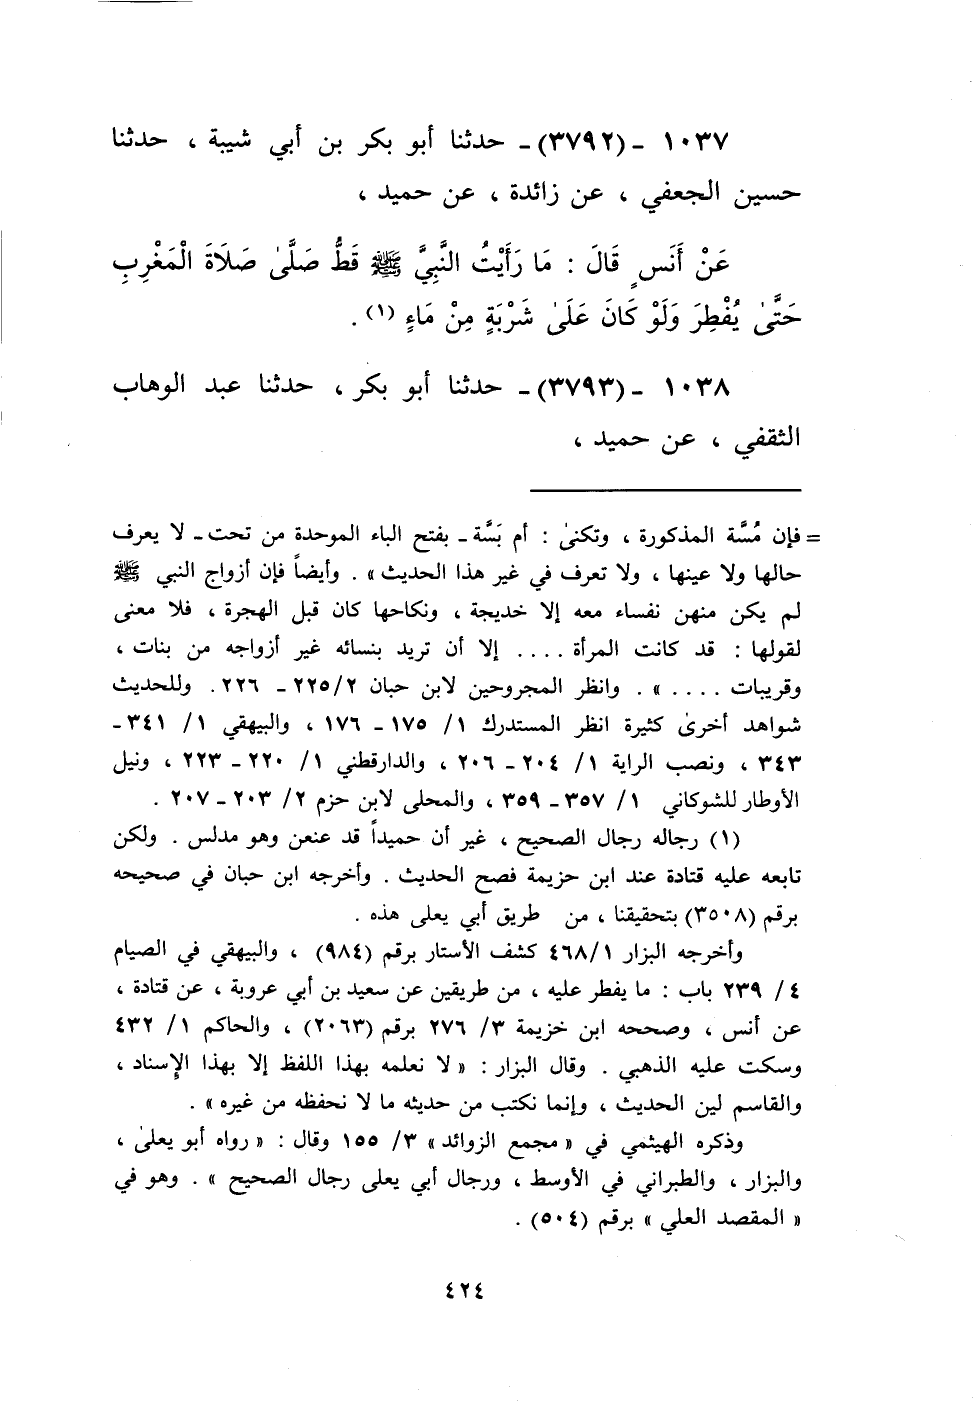 ١٠٣٧ - (٣٧٩٢) - حدثنا أبو بكر بن أبي شيبة ، حدثنا
حسين الجعفي ، عن زائدة ، عن حميد ،
عَنْ أَنَسٍ قَالَ : مَا رَأَيْتُ النَّبِيَّ ﷺ قَطُّ صَلَّىٰ صَلَاةَ الْمَغْرِبِ
حَتَّىٰ يُفْطِرَ وَلَوْ كَانَ عَلَىٰ شَرْبَةٍ مِنْ مَاءٍ (١) .
١٠٣٨ - (٣٧٩٣) - حدثنا أبو بكر ، حدثنا عبد الوهاب
الثقفي ، عن حميد ،
= فإن مُسَّة المذكورة ، وتكنىٰ : أم بَسَّة - بفتح الباء الموحدة من تحت - لا يعرف
حالها ولا عينها ، ولا تعرف في غير هذا الحديث » . وأيضاً فإن أزواج النبي ﷺ
لم يكن منهن نفساء معه إلا خديجة ، ونكاحها كان قبل الهجرة ، فلا معنى
لقولها : قد كانت المرأة .... إلا أن تريد بنسائه غير أزواجه من بنات ،
وقريبات .... » . وانظر المجروحين لابن حبان ٢/٢٢٥ - ٢٢٦ . وللحديث
شواهد أخرىٰ كثيرة انظر المستدرك ١/ ١٧٥ - ١٧٦ ، والبيهقي ١/ ٣٤١ -
٣٤٣ ، ونصب الراية ١/ ٢٠٤ - ٢٠٦ ، والدارقطني ١/ ٢٢٠ - ٢٢٣ ، ونيل
الأوطار للشوكاني ١/ ٣٥٧ - ٣٥٩ ، والمحلى لابن حزم ٢/ ٢٠٣ - ٢٠٧ .
(١) رجاله رجال الصحيح ، غير أن حميداً قد عنعن وهو مدلس . ولكن
تابعه عليه قتادة عند ابن خزيمة فصح الحديث . وأخرجه ابن حبان في صحيحه
برقم (٣٥٠٨) بتحقيقنا ، من طريق أبي يعلى هذه .
وأخرجه البزار ٤٦٨/١ كشف الأستار برقم (٩٨٤) ، والبيهقي في الصيام
٤/ ٢٣٩ باب : ما يفطر عليه ، من طريقين عن سعيد بن أبي عروبة ، عن قتادة ،
عن أنس ، وصححه ابن خزيمة ٣/ ٢٧٦ برقم (٢٠٦٣) ، والحاكم ١/ ٤٣٢
وسكت عليه الذهبي . وقال البزار : « لا نعلمه بهذا اللفظ إلا بهذا الإسناد ،
والقاسم لين الحديث ، وإنما نكتب من حديثه ما لا نحفظه من غيره » .
وذكره الهيثمي في « مجمع الزوائد » ٣/ ١٥٥ وقال : « رواه أبو يعلىٰ ،
والبزار ، والطبراني في الأوسط ، ورجال أبي يعلى رجال الصحيح » . وهو في
« المقصد العلي » برقم (٥٠٤) .
٤٢٤